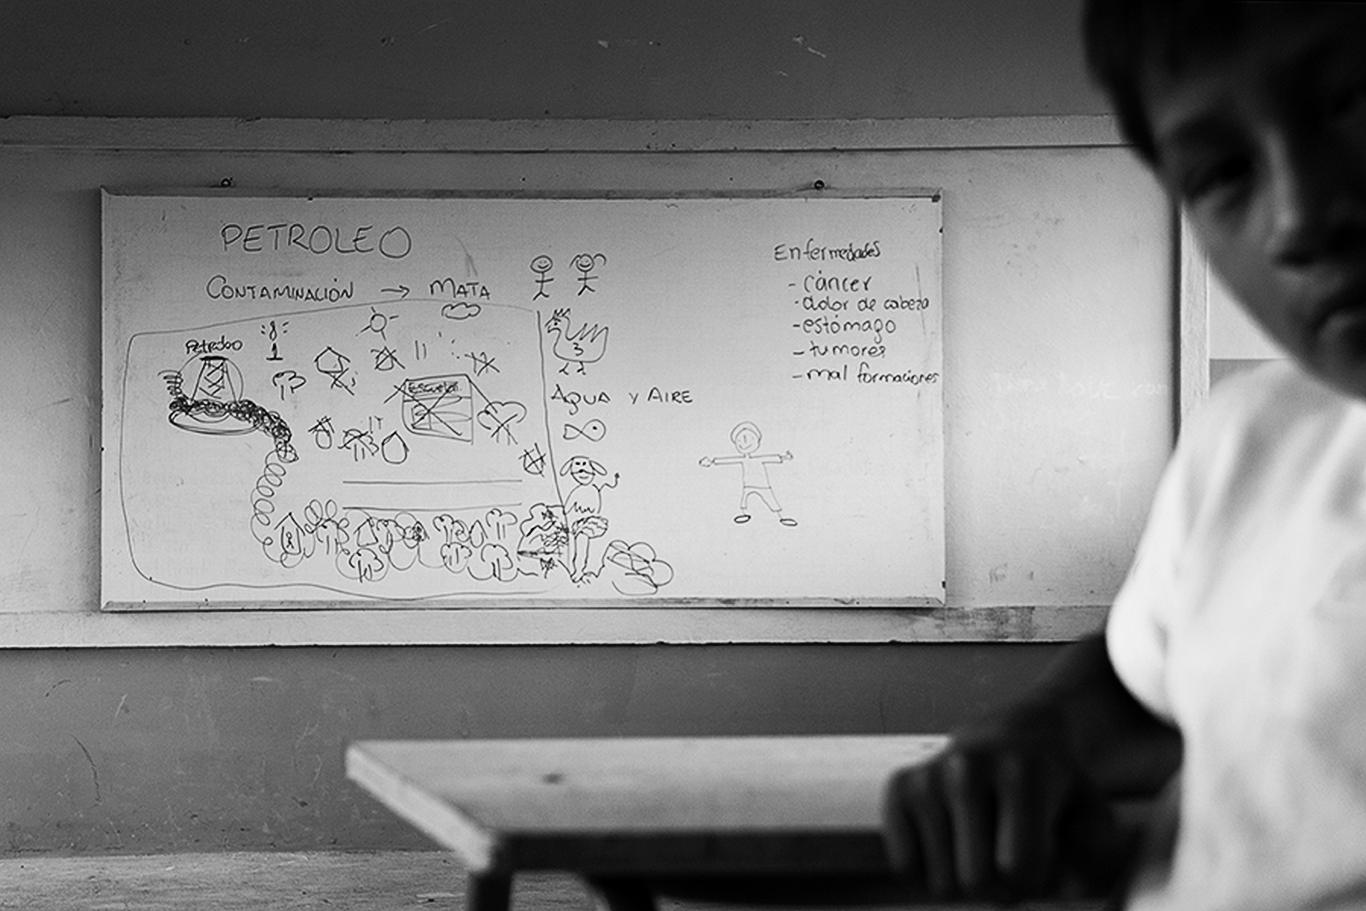 PETROLEO
CONTAMINACIÓN → MATA
Petroleo
Escuela
AGUA Y AIRE
Enfermedades
- cáncer
- dolor de cabeza
- estómago
- tumores
- mal formaciones